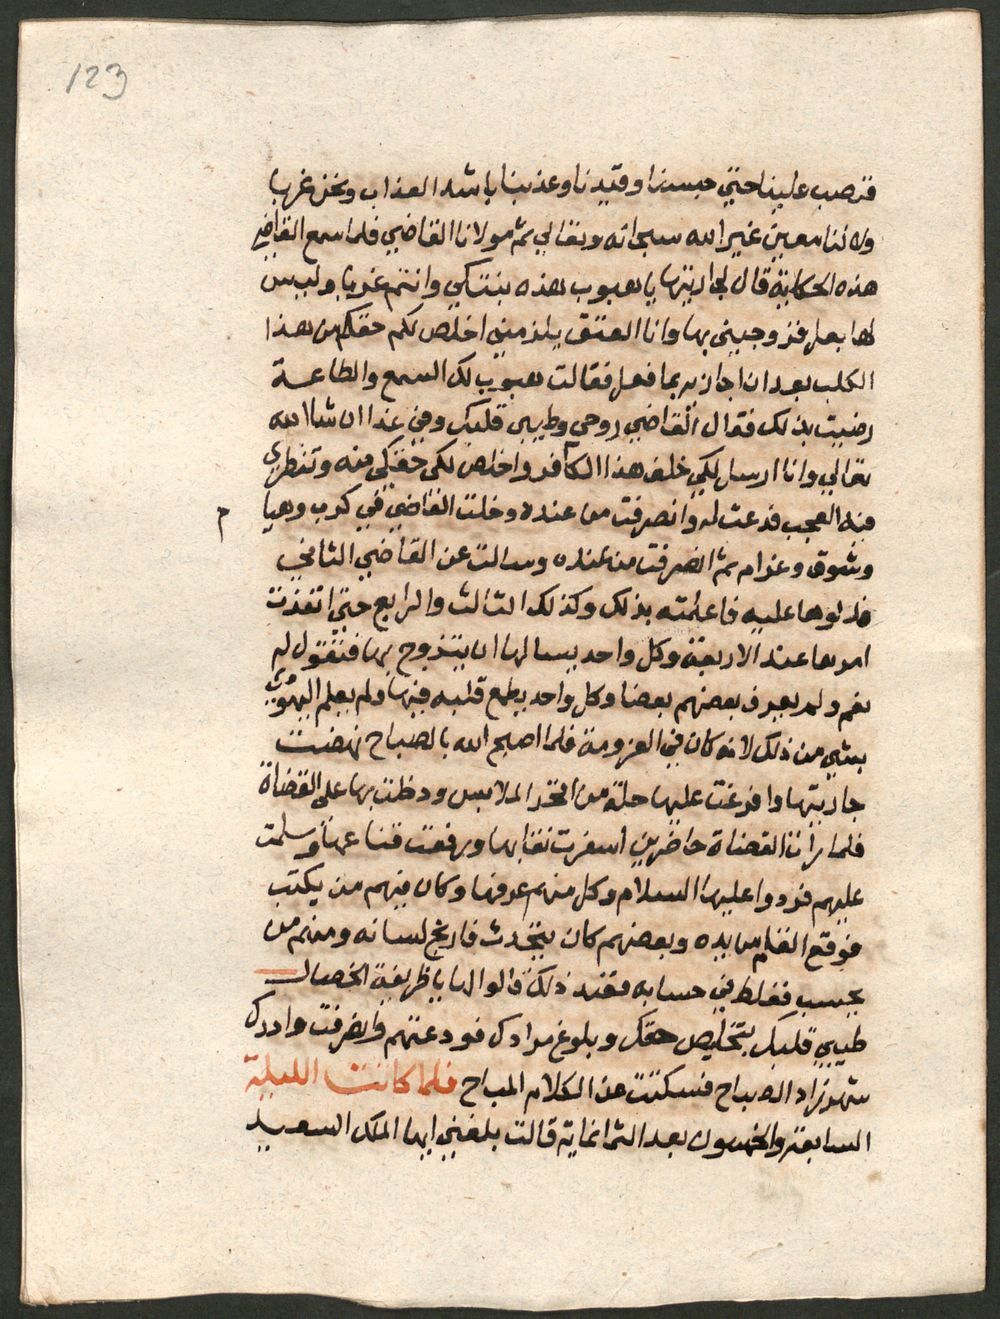 123
فتصب علينا حتي حبسنا وقيدنا وعذبنا باشد العذاب ونحن غربا
ولا لنا معين غير الله سبحانه وتعالي ثم مولانا القاضي فلما سمع القاضي
هذه الحكاية قال لجاريتها يا هبوب هذه بنتكي وانتم غربا وليس
لها بعل فزوجيني بها وانا العتق يلزمني اخلص لكم حقكم من هذا
الكلب بعد ان اجازيه بما فعل فقالت هبوب لك السمع والطاعة
رضيت بذلك فقال القاضي روحي وطيبي قلبك وفي غدا ان شا الله
تعالي وانا ارسل لكي خلف هذا الكافر واخلص لكي حقكي منه وتنظري
فيه العجب فدعت له وانصرفت من عنده وخلت القاضي في كرب وهيا
م
وشوق وغرام ثم انصرفت من عنده وسالت عن القاضي الثاني
فدلوها عليه فاعلمته بذلك وكذلك الثالث والرابع حتي انفذت
امرها عند الاربعة وكل واحد يسالها ان يتزوج بها فتقول له
نعم ولم يعرف بعضهم بعضا وكل واحد يطمع قلبه فيها ولم يعلم اليهودي
بشي من ذلك لانه كان في العزومة فلما اصبح الله بالصباح نهضت
جاريتها وافرغت عليها حلة من افخر الملابس ودخلت بها علي القضاة
فلما رات القضاة حاضرين اسفرت نقابها ورفعت قناعها وسلمت
عليهم فردوا عليها السلام وكل منهم عرفها وكان فيهم من يكتب
فوقع القلم من يده وبعضهم كان يتحدث فارتج لسانه ومنهم من
يحسب فغلط في حسابه فعند ذلك قالوا لها يا ظريفة الخصال
طيبي قلبك بتخليص حقك وبلوغ مرادك فودعتهم وانصرفت وادرك
شهرزاد الصباح فسكتت عن الكلام المباح فلما كانت الليلة
السابعة والخمسون بعد الثمانماية قالت بلغني ايها الملك السعيد